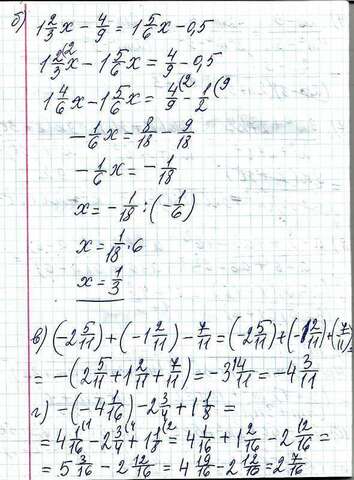 б) 1 2/3 x - 4/9 = 1 5/6 x - 0,5
1 2/3 (2 x - 1 5/6 x = 4/9 - 0,5
1 4/6 x - 1 5/6 x = 4/9 (2 - 1/2 (9
- 1/6 x = 8/18 - 9/18
- 1/6 x = - 1/18
x = - 1/18 : (- 1/6)
x = 1/18 · 6
x = 1/3
в) (-2 5/11) + (-1 2/11) - 7/11 = (-2 5/11) + (-1 2/11) + (7/11)
= -(2 5/11 + 1 2/11 + 7/11) = -3 14/11 = -4 3/11
г) -(-4 1/16) - 2 3/4 + 1 1/8 =
= 4 1/16 (1 - 2 3/4 (4 + 1 1/8 (2 = 4 1/16 + 1 2/16 - 2 12/16 =
= 5 3/16 - 2 12/16 = 4 19/16 - 2 12/16 = 2 7/16